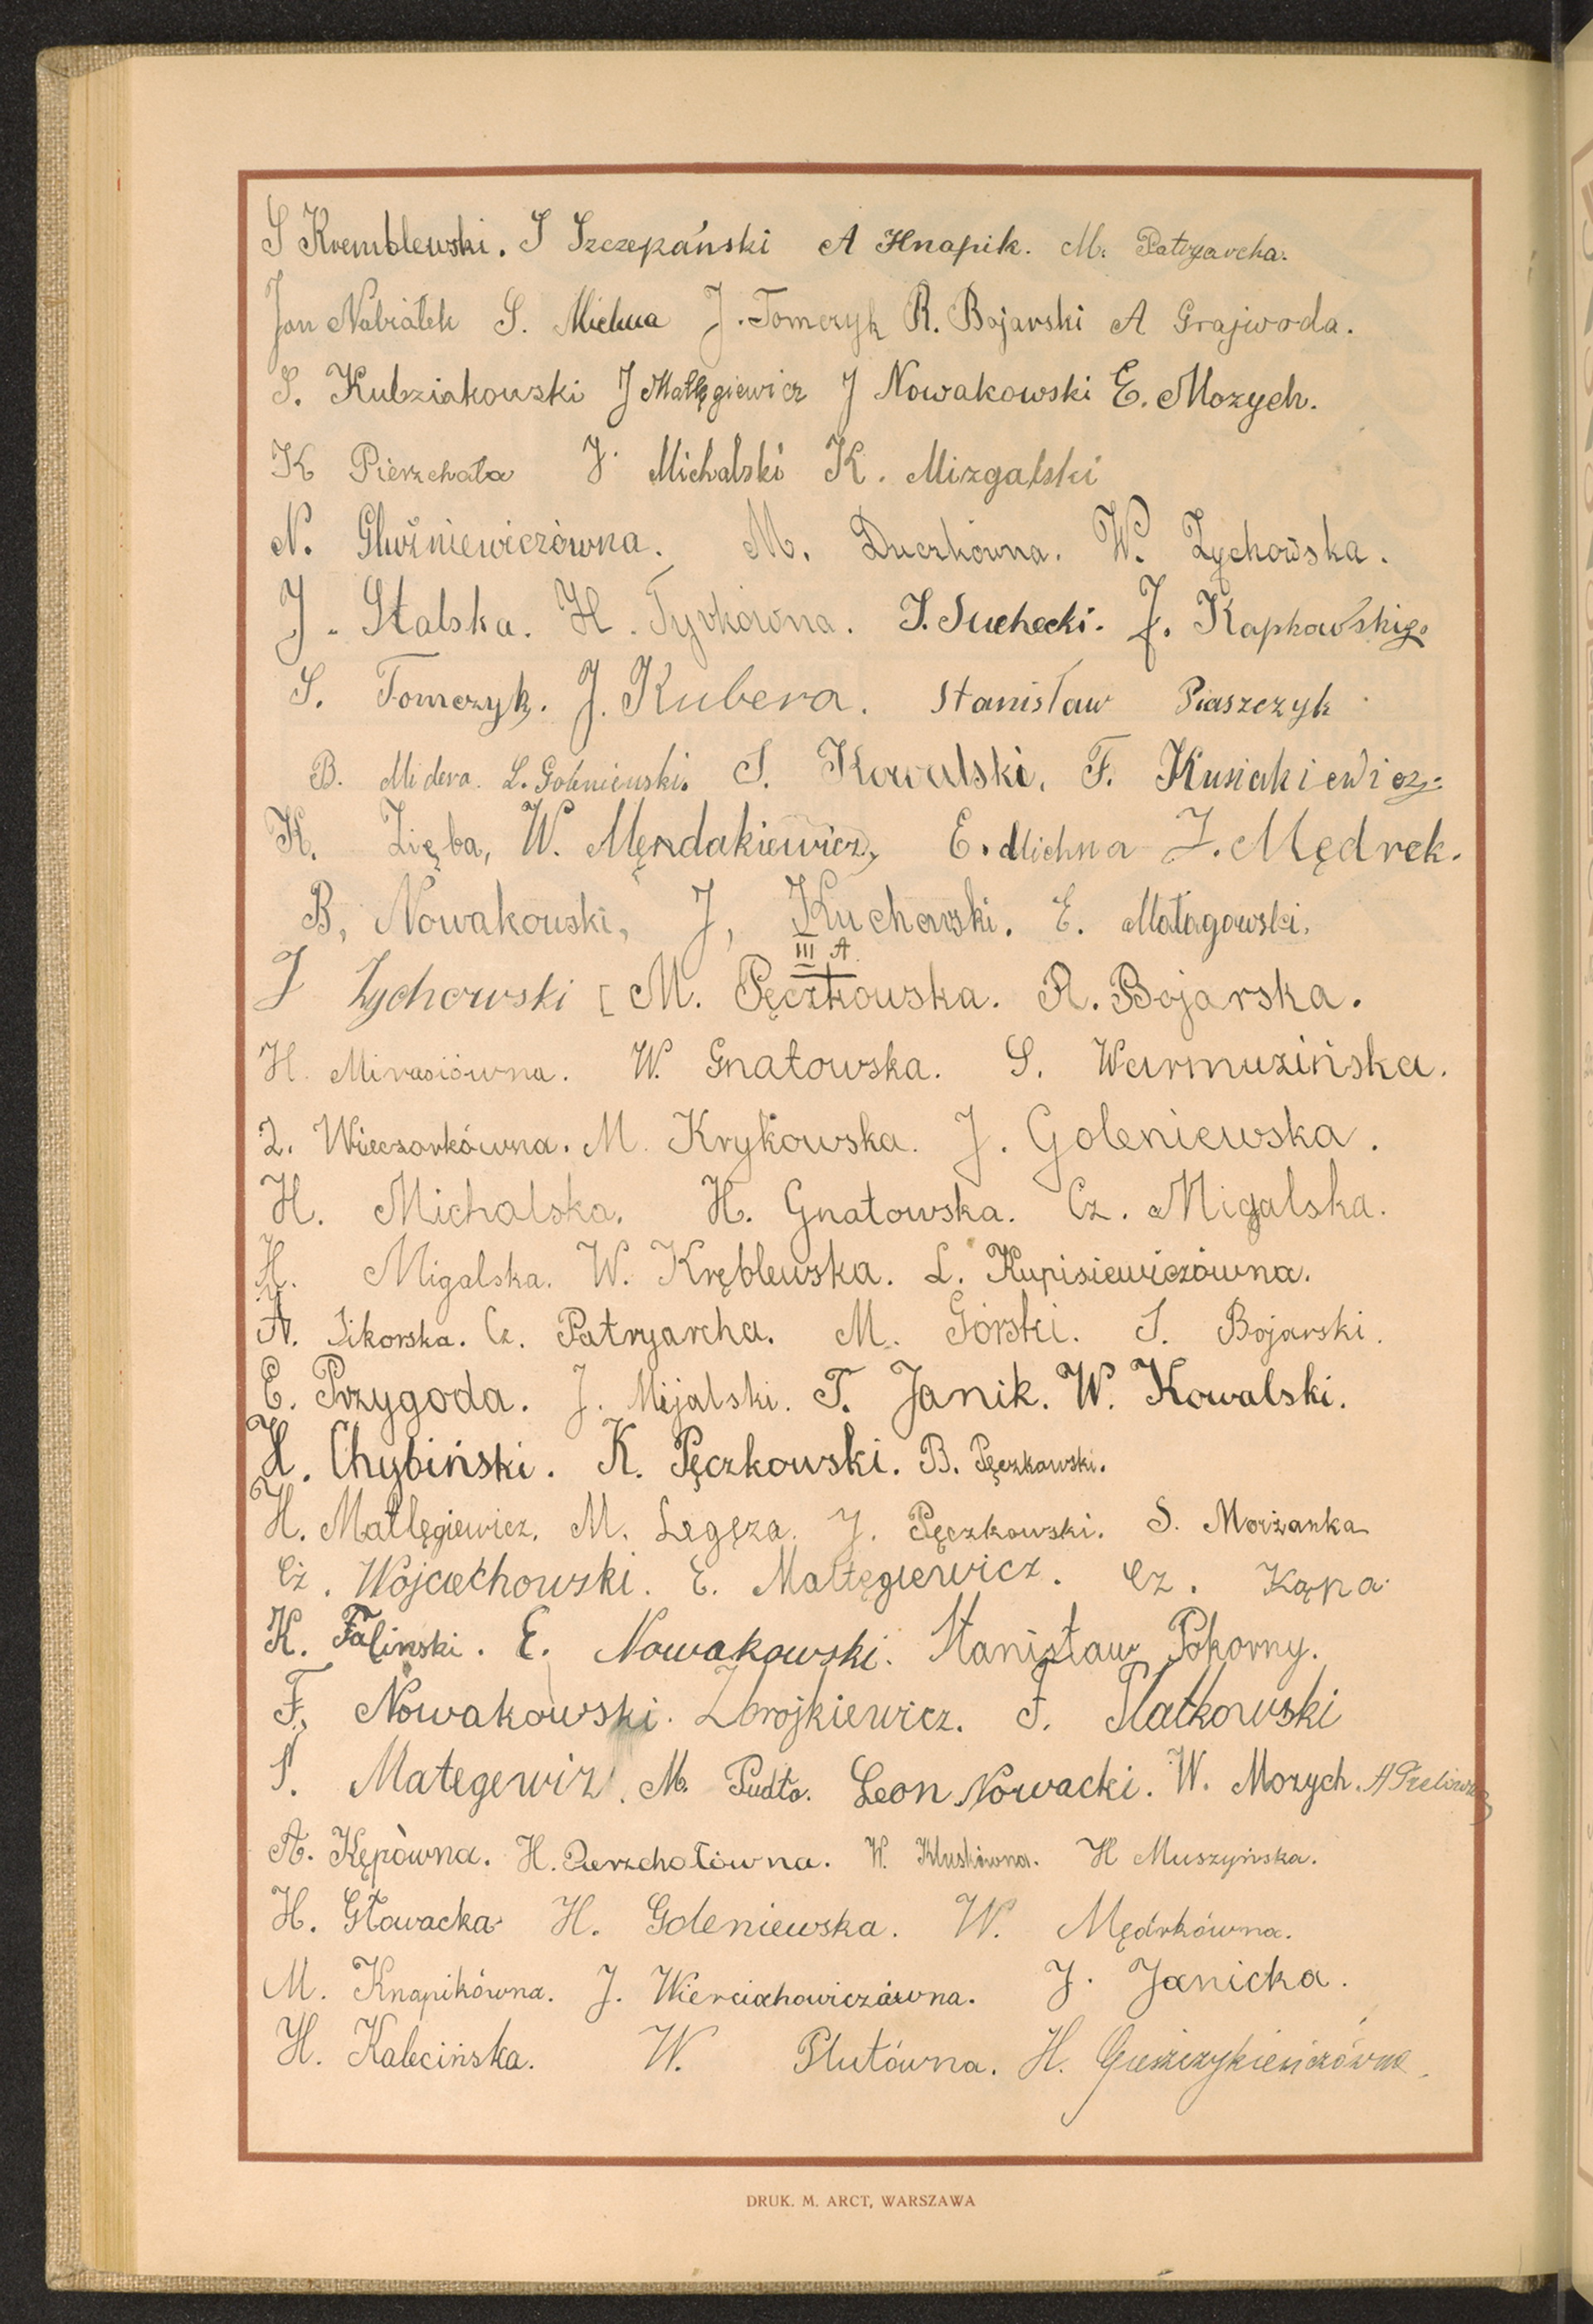 S Kremblewski. J Szczepański A Hnapik. M. Patryarcha.
Jan Nabiałek S. Michna J. Tomczyk R. Bojarski A Grajwoda.
S. Kubziakowski J Małłęgiewicz J Nowakowski E. Mozych.
K Pierzchała J. Michalski K. Mizgalski
N. Gluźniewiczówna. M. Duczkówna. W. Zychowska.
J. Stalska. H. Tyrkówna. S. Suchecki. J. Kapkowski.
S. Tomczyk. J. Kubera. Stanisław Piaszczyk
B. Midera. L. Goleniewski. S. Kowalski. F. Kusiakiewicz.
K. Zięba, W. Męndakiewicz, E. Michna J. Mędrek.
B, Nowakowski, J, Kucharski. E. Małagowski.
III A.
J Zychowski [ M. Pęczkowska. R. Bojarska.
H. Mirasiówna. W. Gnatowska. S. Warmuzińska.
Z. Wieczorkówna. M. Krykowska. J. Goleniewska.
H. Michalska. H. Gnatowska. Cz. Migalska.
H. Migalska. W. Kręblewska. L. Kupisiewiczówna.
A. Sikorska. Cz. Patryarcha. M. Górski. S. Bojarski.
E. Przygoda. J. Mijalski. T. Janik. W. Kowalski.
H. Chybiński. K. Pęczkowski. B. Pęczkowski.
H. Małlęgiewicz. M. Legęza. J. Pęczkowski. S. Morżanka
Cz. Wojciechowski. E. Małłęgiewicz. Cz. Kąpa
K. Faliński. E. Nowakowski. Stanisław Pokorny.
F. Nowakowski. Zbrojkiewicz. F. Płatkowski
S. Mategewiz. M. Pudło. Leon Nowacki. W. Mozych. A
A. Kępówna. H. Pierzchałówna. W. Kluskówna. H Muszyńska.
H. Głowacka H. Goleniewska. W. Mędrkówna.
M. Knapikówna. J. Wierciochowiczówna. J. Janicka.
H. Kalecińska. W. Plutówna. H.
DRUK. M. ARCT, WARSZAWA